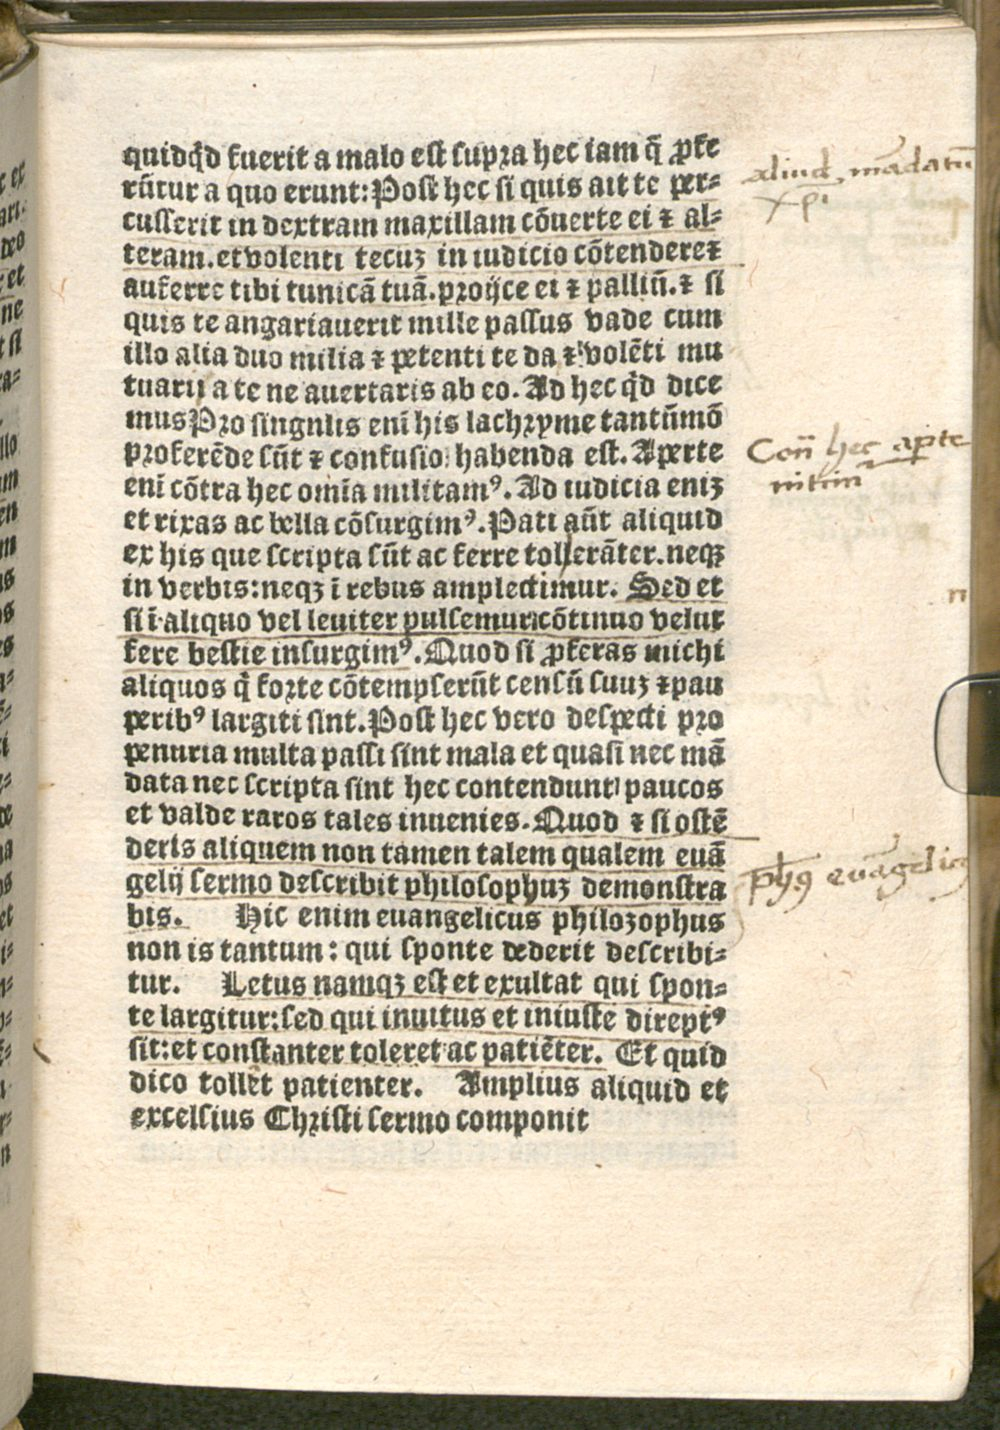 quidq̄d fuerit a malo est supra hec iam q̄ ꝓfe
rūtur a quo erunt: Post hec si quis ait te per⸗
cusserit in dextram maxillam cōuerte ei ⁊ al⸗
teram. et volenti tecuꝫ in iudicio cōtendere ⁊
auferre tibi tunicā tuā. proijce ei ⁊ palliū. ⁊ si
quis te angariauerit mille passus vade cum
illo alia duo milia ⁊ petenti te da ⁊ volēti mu
tuarij a te ne auertaris ab eo. Ad hec q̄d dice
mus Pro singulis eni his lachryme tantūmō
proferēde sūt ⁊ confusio habenda est. Aperte
eni cōtra hec omīa militamꝰ. Ad iudicia eniꝫ
et rixas ac bella cōsurgimꝰ. Pati aūt aliquid
ex his que scripta sūt ac ferre tollerāter. neqꝫ
in verbis: neqꝫ ī rebus amplectimur. Sed et
si ī aliquo vel leuiter pulsemur cōtinuo velut
fere bestie insurgimꝰ. Quod si ꝓferas michi
aliquos q̄ forte cōtempserūt censū suuꝫ ⁊ pau
peribꝰ largiti sint. Post hec vero despecti pro
penuria multa passi sint mala et quasi nec mā
data nec scripta sint hec contendunt paucos
et valde raros tales inuenies. Quod ⁊ si ostē
deris aliquem non tamen talem qualem euā
gelij sermo describit philosophuꝫ demonstra
bis. Hic enim euangelicus philozophus
non is tantum: qui sponte dederit describi⸗
tur. Letus namqꝫ est et exultat qui spon⸗
te largitur: sed qui inuitus et iniuste direptꝰ
sit: et constanter toleret ac patiēter. Et quid
dico tollet patienter. Amplius aliquid et
excelsius Christi sermo componit
aliud mādatū
xp̄i
Con̄ hec aperte
nitim̄
ph̄ꝰ euāgelicꝰ